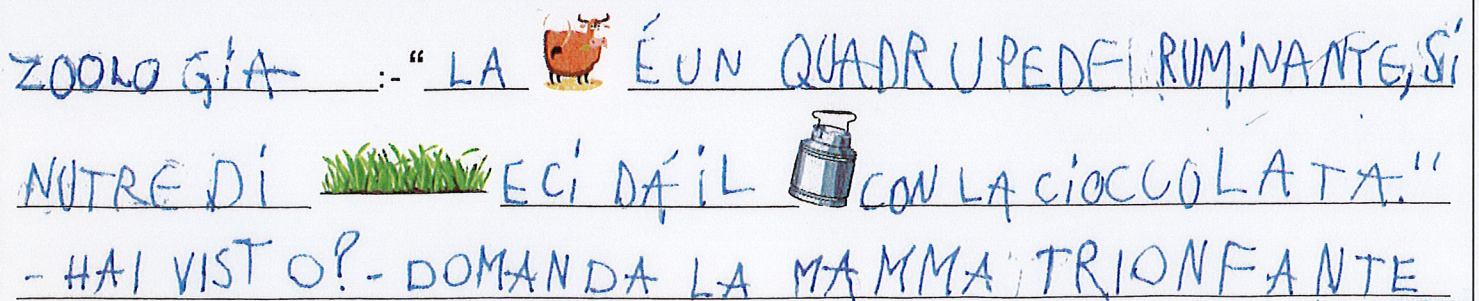 ZOOLOGIA :-“ LA É UN QUADRUPEDE RUMINANTE, SI
NUTRE DI E CI DÁ IL CON LA CIOCCOLATA."
- HAI VISTO? - DOMANDA LA MAMMA TRIONFANTE